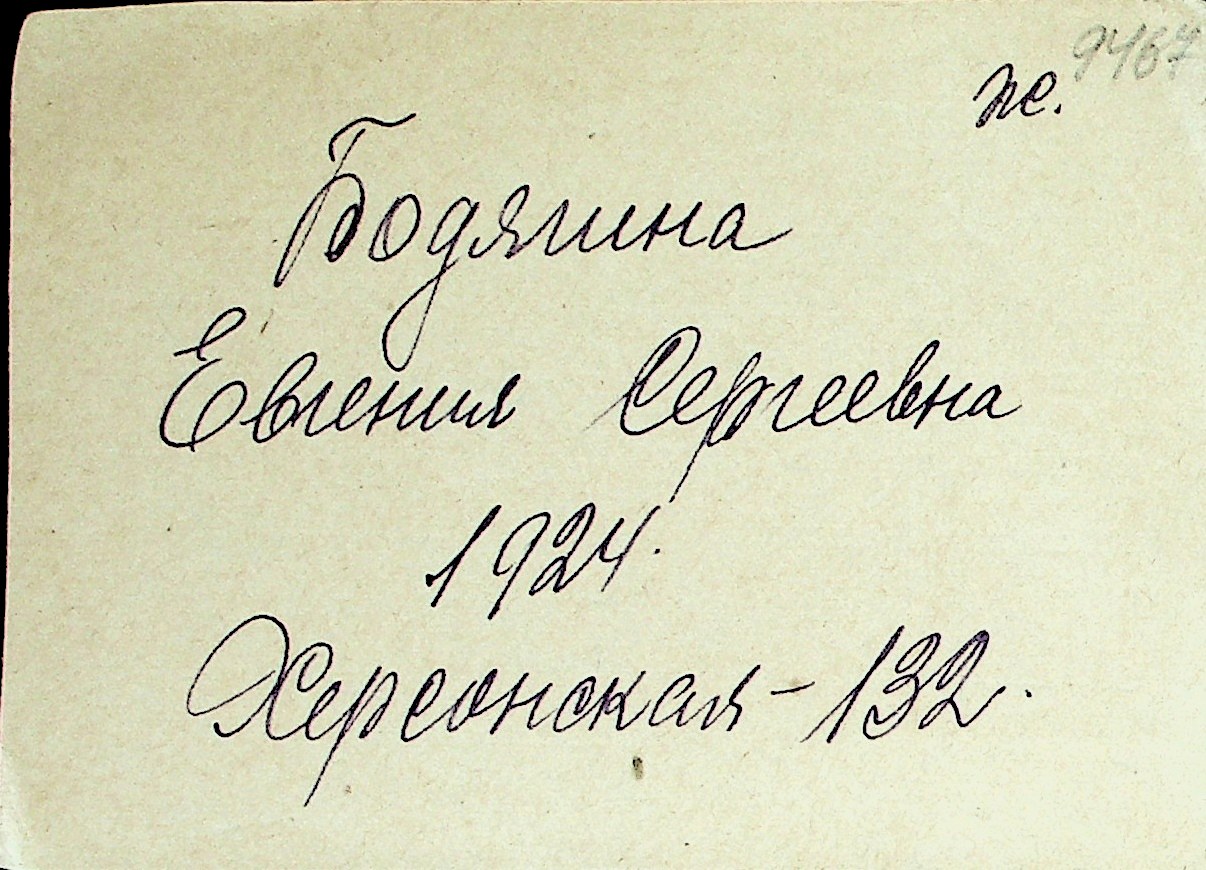 9467
пс.
Бодягина
Евгения Сергеевна
1924.
Херсонская - 132.